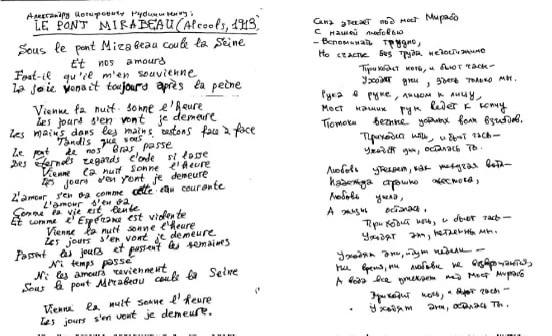 Александру Иосифовичу
LE PONT MIRABEAU (Alcools, 1913)
Sous le pont Mirabeau coule la Seine
Et nos amours
Faut-il qu'il m'en souvienne
La joie venait toujours après la peine
Vienne la nuit sonne l'heure
Les jours s'en vont je demeure
Les mains dans les mains restons face à face
Tandis que sous
Le pont de nos bras passe
Des éternels regards l'onde si lasse
Vienne la nuit sonne l'heure
Les jours s'en vont je demeure
L'amour s'en va comme cette eau courante
L'amour s'en va
Comme la vie est lente
Et comme l'Espérance est violente
Vienne la nuit sonne l'heure
Les jours s'en vont je demeure
Passent les jours et passent les semaines
Ni temps passé
Ni les amours reviennent
Sous le pont Mirabeau coule la Seine
Vienne la nuit sonne l'heure
Les jours s'en vont je demeure.
Сена утекает под мост Мирабо
С нашей любовью
- Вспоминать трудно,
Но счастье без труда
Приходит ночь, и бьют часы -
Уходят дни, здесь только мы.
Рука в руке, лицом к лицу,
Мост наших рук ведет к концу
Потоки вечные усталых волн взглядов.
Приходит ночь, и бьют часы -
Уходят дни, осталась ты.
Любовь утекает, как текучая вода -
Надежда страшно жестока,
Любовь ушла,
А жизнь осталась.
Приходит ночь, и бьют часы -
Уходят дни,
Уходят дни, идут недели -
Ни время, ни любовь не возвращаются,
А вода все утекает под мост Мирабо
Приходит ночь, и бьют часы -
Уходят дни, осталась ты.